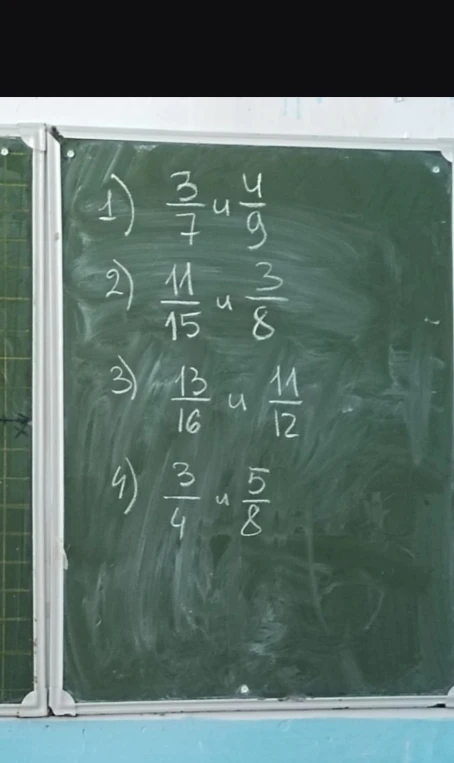 1) 3/7 и 4/9
2) 11/15 и 3/8
3) 13/16 и 11/12
4) 3/4 и 5/8